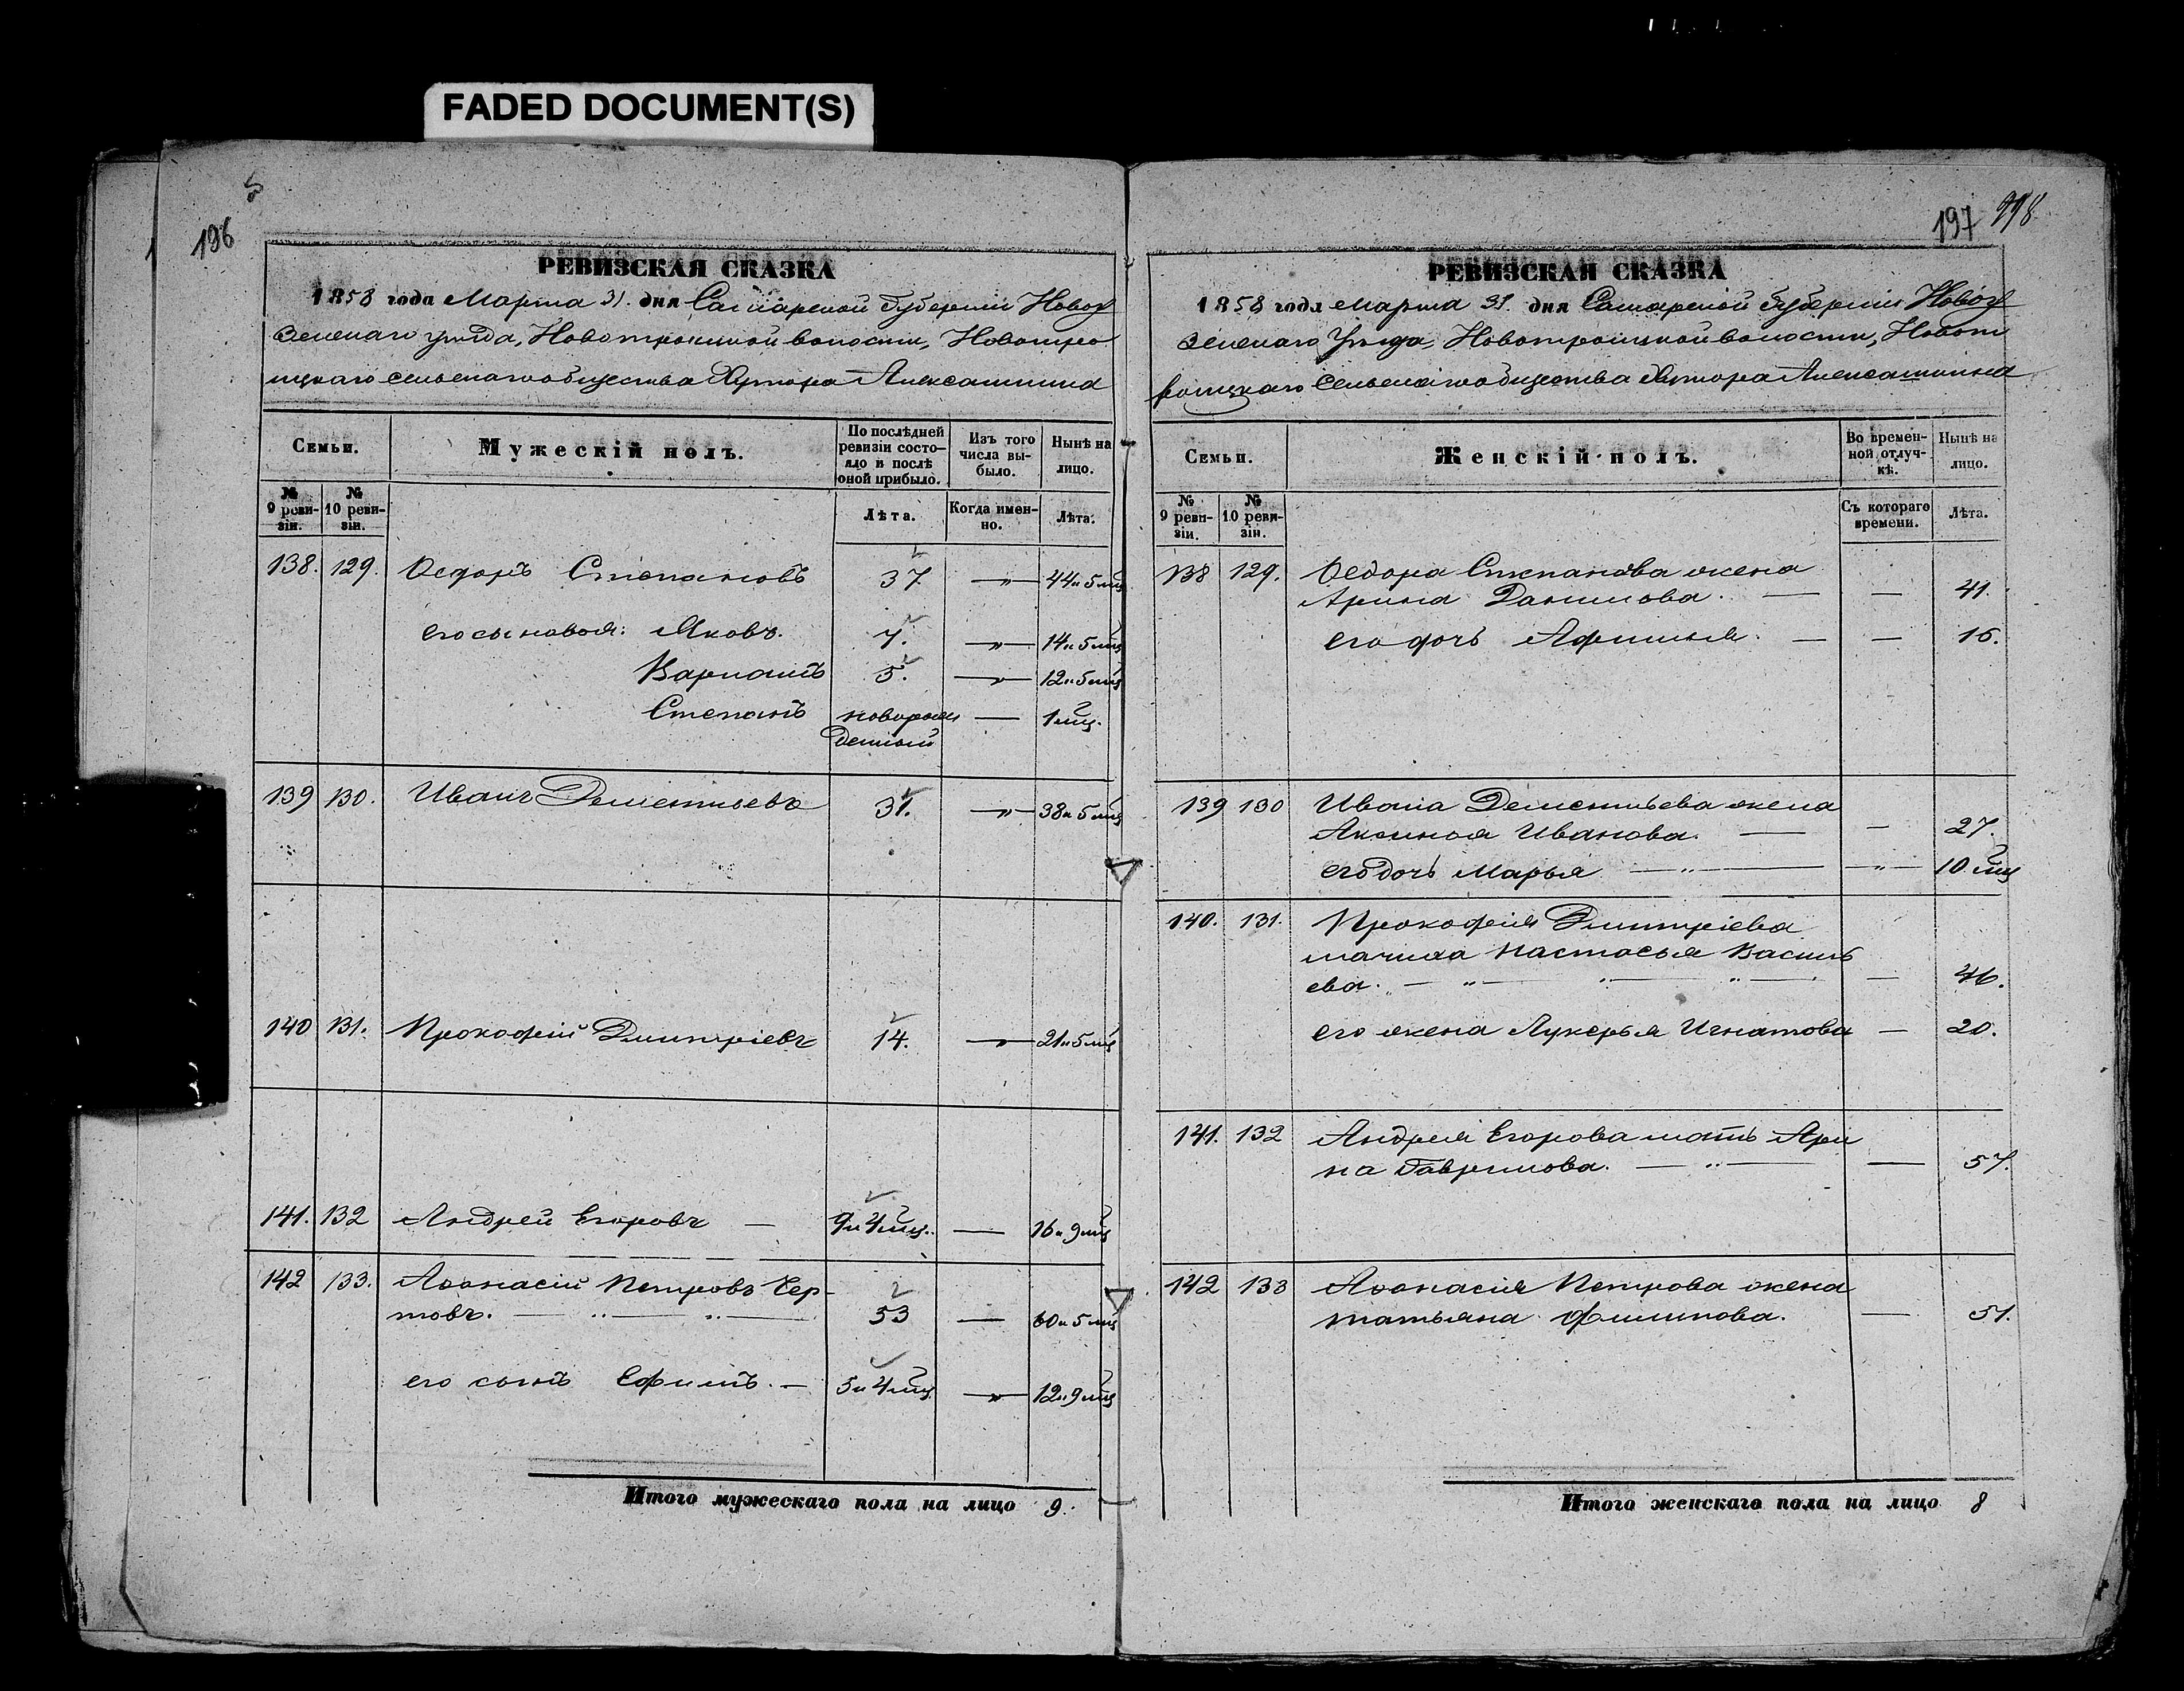 FADED DOCUMENT(S)
196
РЕВИЗСКАЯ СКАЗКА
1858 года Марта 31. дня Самарской Губерніи Новоу
зенскаго уѣзда, Новотроицкой волости, Новотро
ицкаго сельскаго общества Хутора Алексашкина
Семьи.
Мужескій полъ.
По послѣдней ревизіи состояло и послѣ оной прибыло.
Изъ того числа выбыло.
Нынѣ на лицо.
№ 9 ревизіи.
№ 10 ревизіи.
Лѣта.
Когда именно.
Лѣта.
138. 129. Ѳедоръ Степановъ 37 — " — 44 и 5 мц
его сыновья: Яковъ. 7. — " — 14 и 5 мц
Варламъ 5. — " — 12 и 5 мц
Степанъ новорож — 1 мц.
денный
139 130. Иванъ Дементьевъ 31. — " — 38 и 5 мц
140 131. Прокофій Дмитріевъ 14. — " — 21 и 5 мц
141. 132 Андрей Егоровъ — 9 и 4 мц. — 16 и 9 мц
142 133. Аѳонасій Петровъ Чер-
товъ. — " — " — 53 — 60 и 5 мц
его сынъ Ефимъ. — 5 и 4 мц — " — 12 и 9 мц
Итого мужескаго пола на лицо 9.
197
РЕВИЗСКАЯ СКАЗКА
1858 года марта 31. дня Самарской Губерніи Новоу
зенскаго Уѣзда, Новотроицкой волости, Новот
роицкаго сельскаго общества Хутора Алексашкина
Семьи.
Женскій полъ.
Во временной отлучкѣ.
Нынѣ на лицо.
№ 9 ревизіи.
№ 10 ревизіи.
Съ котораго времени.
Лѣта.
138 129. Ѳедора Степанова жена
Арина Данилова. — — 41.
его дочь Афимья. — — 16.
139 130 Ивана Дементьева жена
Аксинья Иванова. — — 27.
его дочь Марья — " — — " — 10 мц
140. 131. Прокофія Дмитріева
мачиха Настасья Василь
ева. — " — " — " — — 46.
его жена Лукерья Игнатова — 20.
141. 132 Андрея Егорова мать Ари
на Гаврилова. — " — — 57.
142 133 Аѳонасія Петрова жена
татьяна Филипова. — 51.
Итого женскаго пола на лицо 8